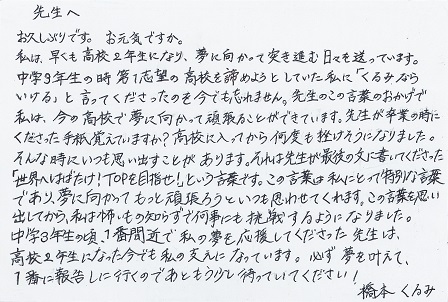 先生へ
お久しぶりです。お元気ですか。
私は、早くも高校2年生になり、夢に向かって突き進む日々を送っています。
中学3年生の時 第1志望の高校を諦めようとしていた私に「くるみなら
いける」と言ってくださったのを今でも忘れません。先生のこの言葉のおかげで
私は、今の高校で夢に向かって頑張ることができています。先生が卒業の時に
くださった手紙、覚えていますか?高校に入ってから何度も挫けそうになりました。
そんな時にいつも思い出すことがあります。それは先生が最後の文に書いてくださった
「世界へはばたけ!TOPを目指せ!」という言葉です。この言葉は私にとって特別な言葉
であり、夢に向かってもっと頑張ろうといつも思わせてくれます。この言葉を思い
出してから、私は怖いもの知らずで何事にも挑戦するようになりました。
中学3年生の頃、1番間近で私の夢を応援してくださった先生は、
高校2年生になった今でも私の支えになっています。必ず夢を叶えて、
1番に報告しに行くのであともう少し待っていてください!
橋本くるみ